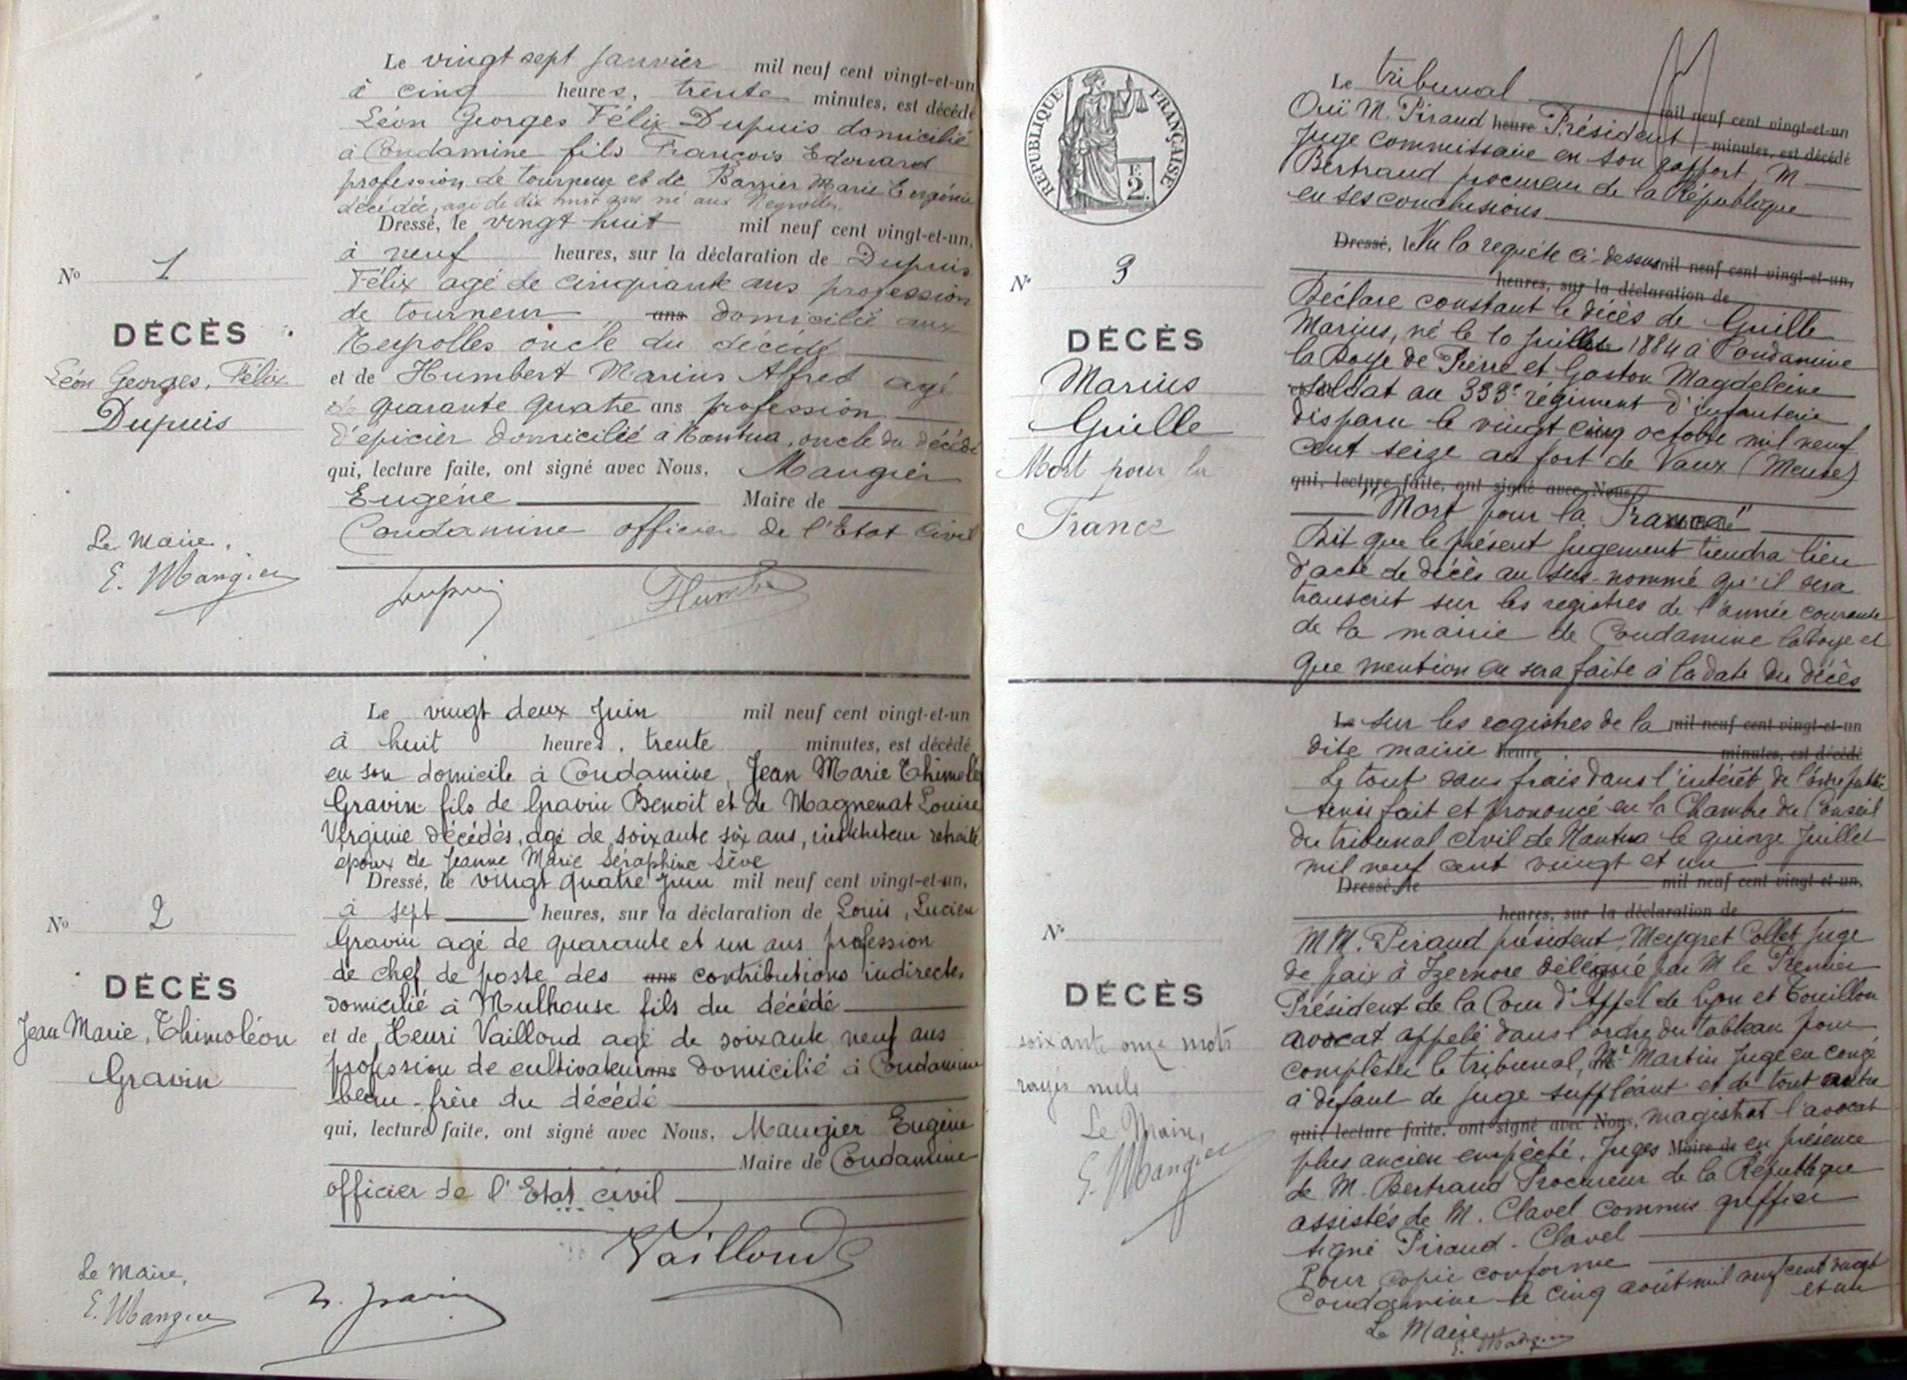 Le vingt sept Janvier mil neuf cent vingt-et-un
à cinq heures, trente minutes, est décédé
Léon Georges Félix Dupuis domicilié
à Condamine fils François Edouard
profession de tourneur et de Barrier Marie Eugénie
décédée, agé de dix huit ans né aux Neyrolles
Dressé, le vingt huit mil neuf cent vingt-et-un,
à neuf heures, sur la déclaration de Dupuis
Félix agé de cinquante ans profession
de tourneur ans domicilié aux
Neyrolles oncle du décédé
et de Humbert Marius Alfred agé
de quarante quatre ans profession
d'épicier domicilié à Nantua, oncle du décédé
qui, lecture faite, ont signé avec Nous, Maugier
Eugène Maire de
Condamine officier de l'Etat Civil
No 1
DÉCÈS
Léon Georges, Félix
Dupuis
Le Maire,
E. Maugier
Dupuis Humbert
Le vingt deux Juin mil neuf cent vingt-et-un
à huit heures, trente minutes, est décédé
en son domicile à Condamine, Jean Marie Thimoléon
Gravin fils de Gravin Benoit et de Magnenat Louise
Virginie décédés, agé de soixante six ans, instituteur retraité
époux de Jeanne Marie Séraphine Sève
Dressé, le vingt quatre Juin mil neuf cent vingt-et-un,
à sept heures, sur la déclaration de Louis, Lucien
Gravin agé de quarante et un ans profession
de chef de poste des ans contributions indirectes
domicilié à Mulhouse fils du décédé
et de Henri Vailloud agé de soixante neuf ans
profession de cultivateur ans domicilié à Condamine
beau-frère du décédé
qui, lecture faite, ont signé avec Nous, Maugier Eugène
Maire de Condamine
officier de l'Etat civil
No 2
DÉCÈS
Jean Marie, Thimoléon
Gravin
Le Maire,
E. Maugier
Vailloud
L. Gravin
RÉPUBLIQUE FRANÇAISE
2 F.
Le tribunal mil neuf cent vingt-et-un
Ouï M. Piraud heure Président minutes, est décédé
Juge commissaire en son rapport, M
Bertrand procureur de la République
en ses conclusions
Dressé, le Vu la requête ci-dessus mil neuf cent vingt-et-un,
heures, sur la déclaration de
Déclare constant le décès de Guille
Marius, né le 10 Juillet 1884 à Condamine
la Doye de Pierre et Gaston Magdeleine
soldat au 333e régiment d'infanterie
disparu le vingt cinq octobre mil neuf
cent seize au fort de Vaux (Meuse)
qui, lecture faite, ont signé avec Nous,
"Mort pour la France"
Dit que le présent jugement tiendra lieu
d'acte de décès au sus-nommé qu'il sera
transcrit sur les registres de l'année courante
de la mairie de Condamine la Doye et
que mention en sera faite à la date du décès
No 3
DÉCÈS
Marius
Guille
Mort pour la
France
Le sur les registres de la mil neuf cent vingt-et-un
dite mairie heure minutes, est décédé
Le tout sans frais dans l'intérêt de l'ordre public
Ainsi fait et prononcé en la Chambre du Conseil
du tribunal civil de Nantua le quinze Juillet
mil neuf cent vingt et un
Dressé, le mil neuf cent vingt-et-un,
heures, sur la déclaration de
MM. Piraud président, Meygret Collet Juge
de paix à Izernore délégué par M le Premier
Président de la Cour d'Appel de Lyon et Touillon
avocat appelé dans l'ordre du tableau pour
compléter le tribunal, Mr Martin Juge en congé
à défaut de juge suppléant et de tout autre
qui, lecture faite, ont signé avec Nous, magistrat l'avocat
plus ancien empêché. Juges Maire de en présence
de M. Bertrand Procureur de la République
assistés de M. Clavel commis greffier
signé Piraud - Clavel
Pour copie conforme
Condamine le cinq août mil neuf cent vingt
et un
Le Maire
E. Maugier
No
DÉCÈS
soixante onze mots
rayés nuls
Le Maire,
E. Maugier